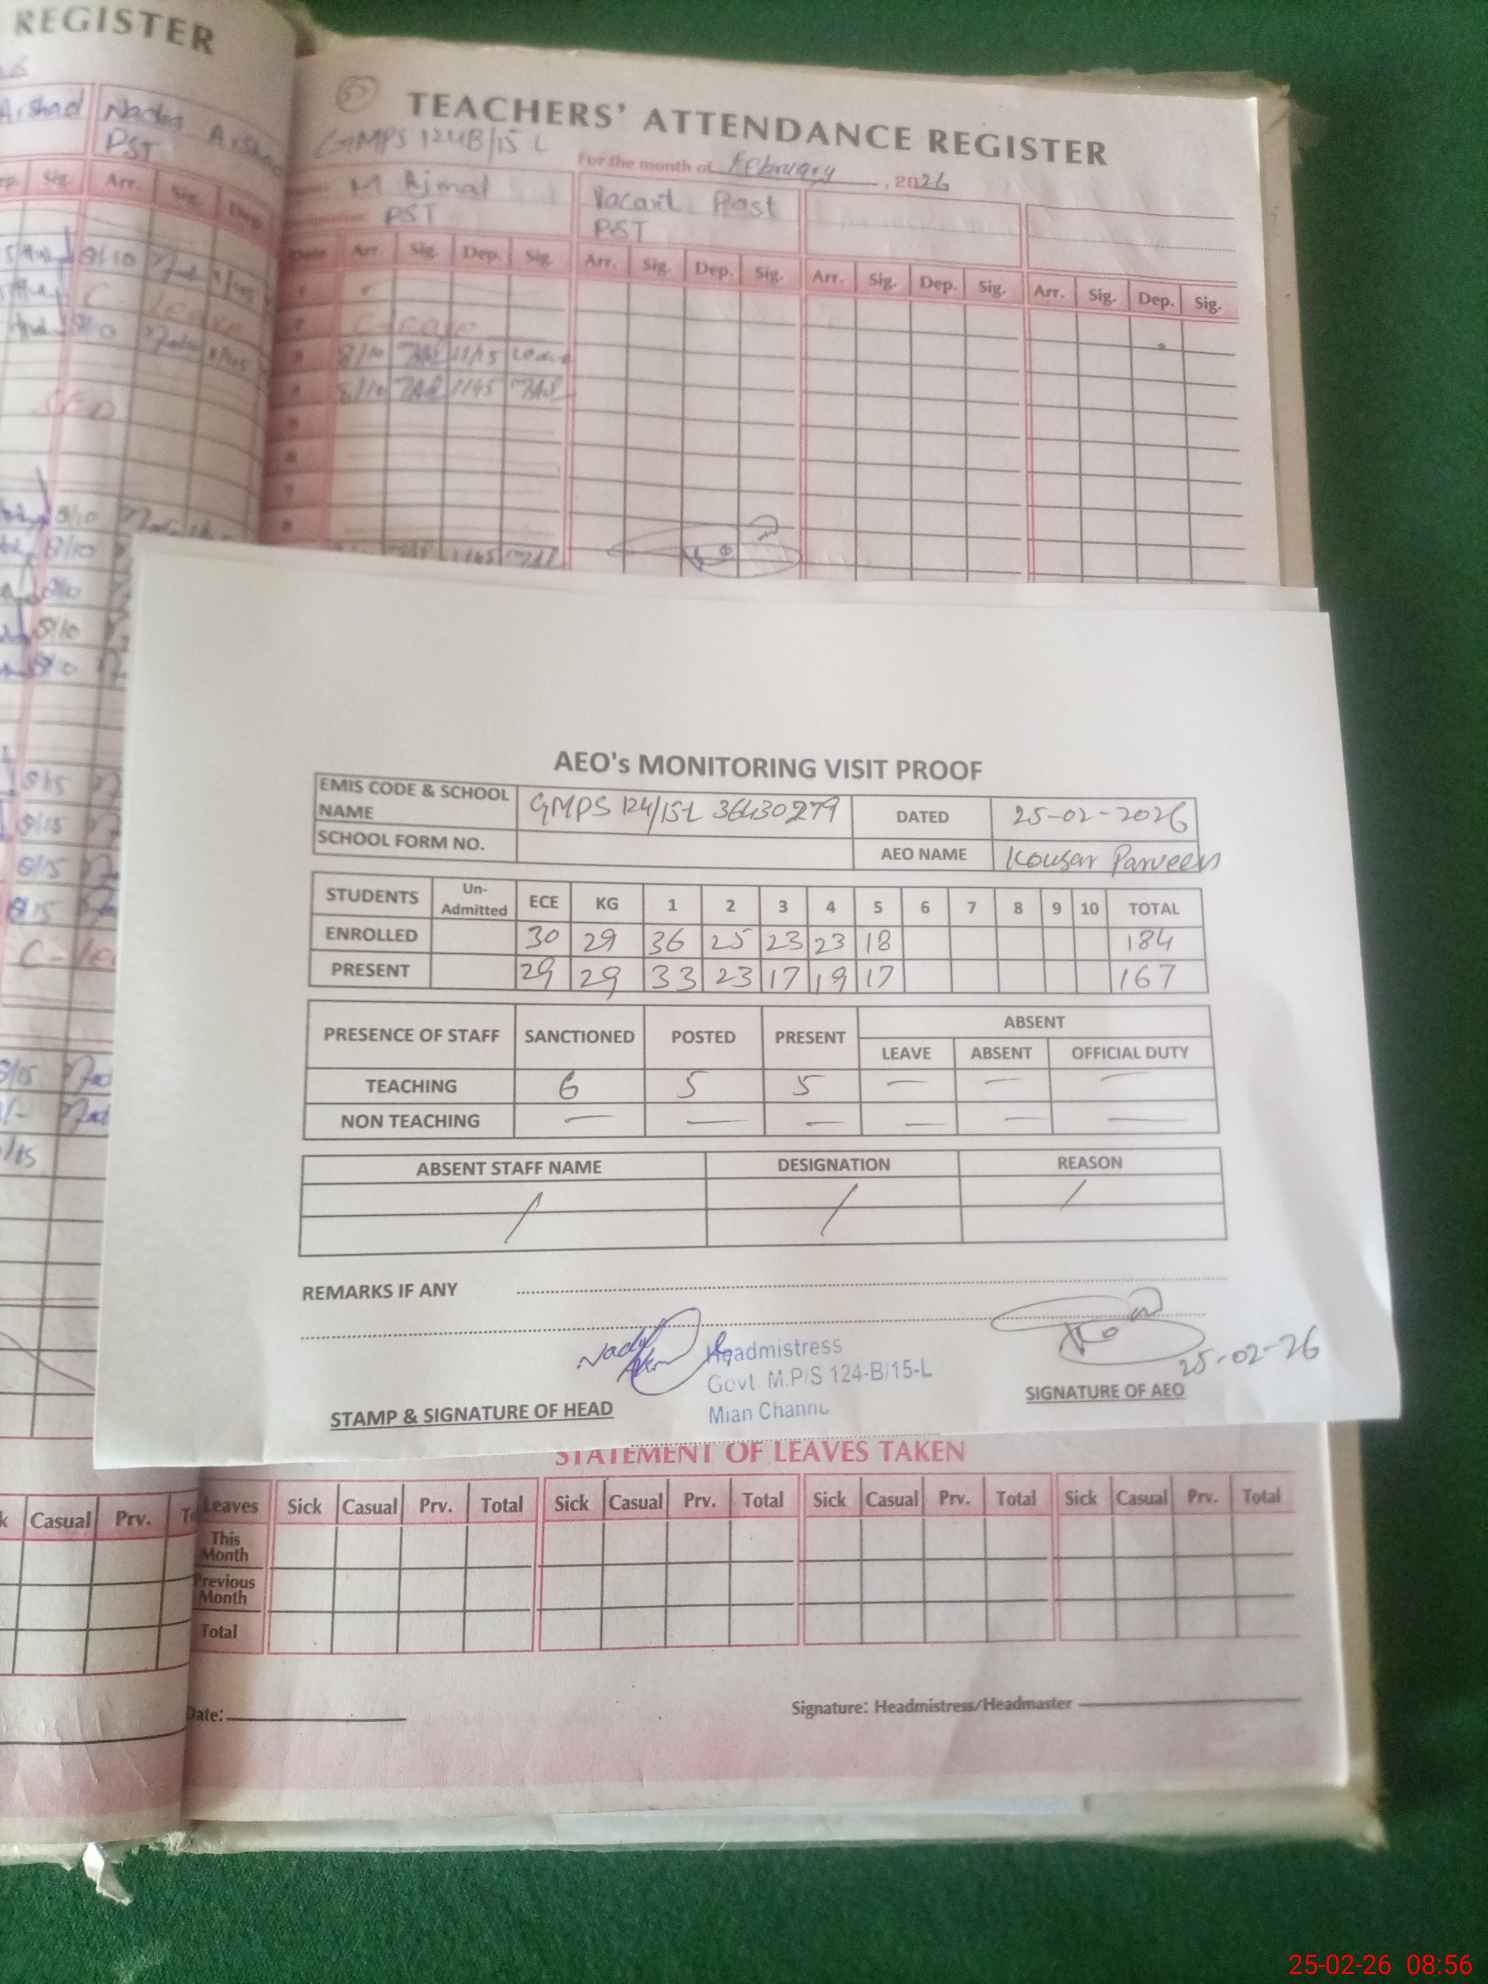 REGISTER
Arshad Nadia Arshad
PST
Sig. Arr. Sig. Dep.
8/10
C - Leave
8/10
8/10
8/10
8/10
8/10
8/10
8/15
8/15
8/15
8/15
C-Lea
8/15
TEACHERS' ATTENDANCE REGISTER
GMPS 124B/15 L
For the month of February, 2026
M Ajmal Vacant Post
PST PST
Date Arr. Sig. Dep. Sig. Arr. Sig. Dep. Sig. Arr. Sig. Dep. Sig. Arr. Sig. Dep. Sig.
1
2 C-Leave
3 8/10 11/15
4 8/10 1145
5
6
7
8
1145
AEO's MONITORING VISIT PROOF
EMIS CODE & SCHOOL NAME GMPS 124/15-L 36430279 DATED 25-02-2026
SCHOOL FORM NO. AEO NAME Kousar Parveen
STUDENTS Un-Admitted ECE KG 1 2 3 4 5 6 7 8 9 10 TOTAL
ENROLLED 30 29 36 25 23 23 18 184
PRESENT 29 29 33 23 17 19 17 167
PRESENCE OF STAFF SANCTIONED POSTED PRESENT ABSENT
LEAVE ABSENT OFFICIAL DUTY
TEACHING 6 5 5 — — —
NON TEACHING — — — — — —
ABSENT STAFF NAME DESIGNATION REASON
/ / /
REMARKS IF ANY
Headmistress
Govt. M.P/S 124-B/15-L
Mian Channu
25-02-26
STAMP & SIGNATURE OF HEAD SIGNATURE OF AEO
STATEMENT OF LEAVES TAKEN
Casual Prv. Leaves Sick Casual Prv. Total Sick Casual Prv. Total Sick Casual Prv. Total Sick Casual Prv. Total
This Month
Previous Month
Total
Date: Signature: Headmistress/Headmaster
25-02-26 08:56